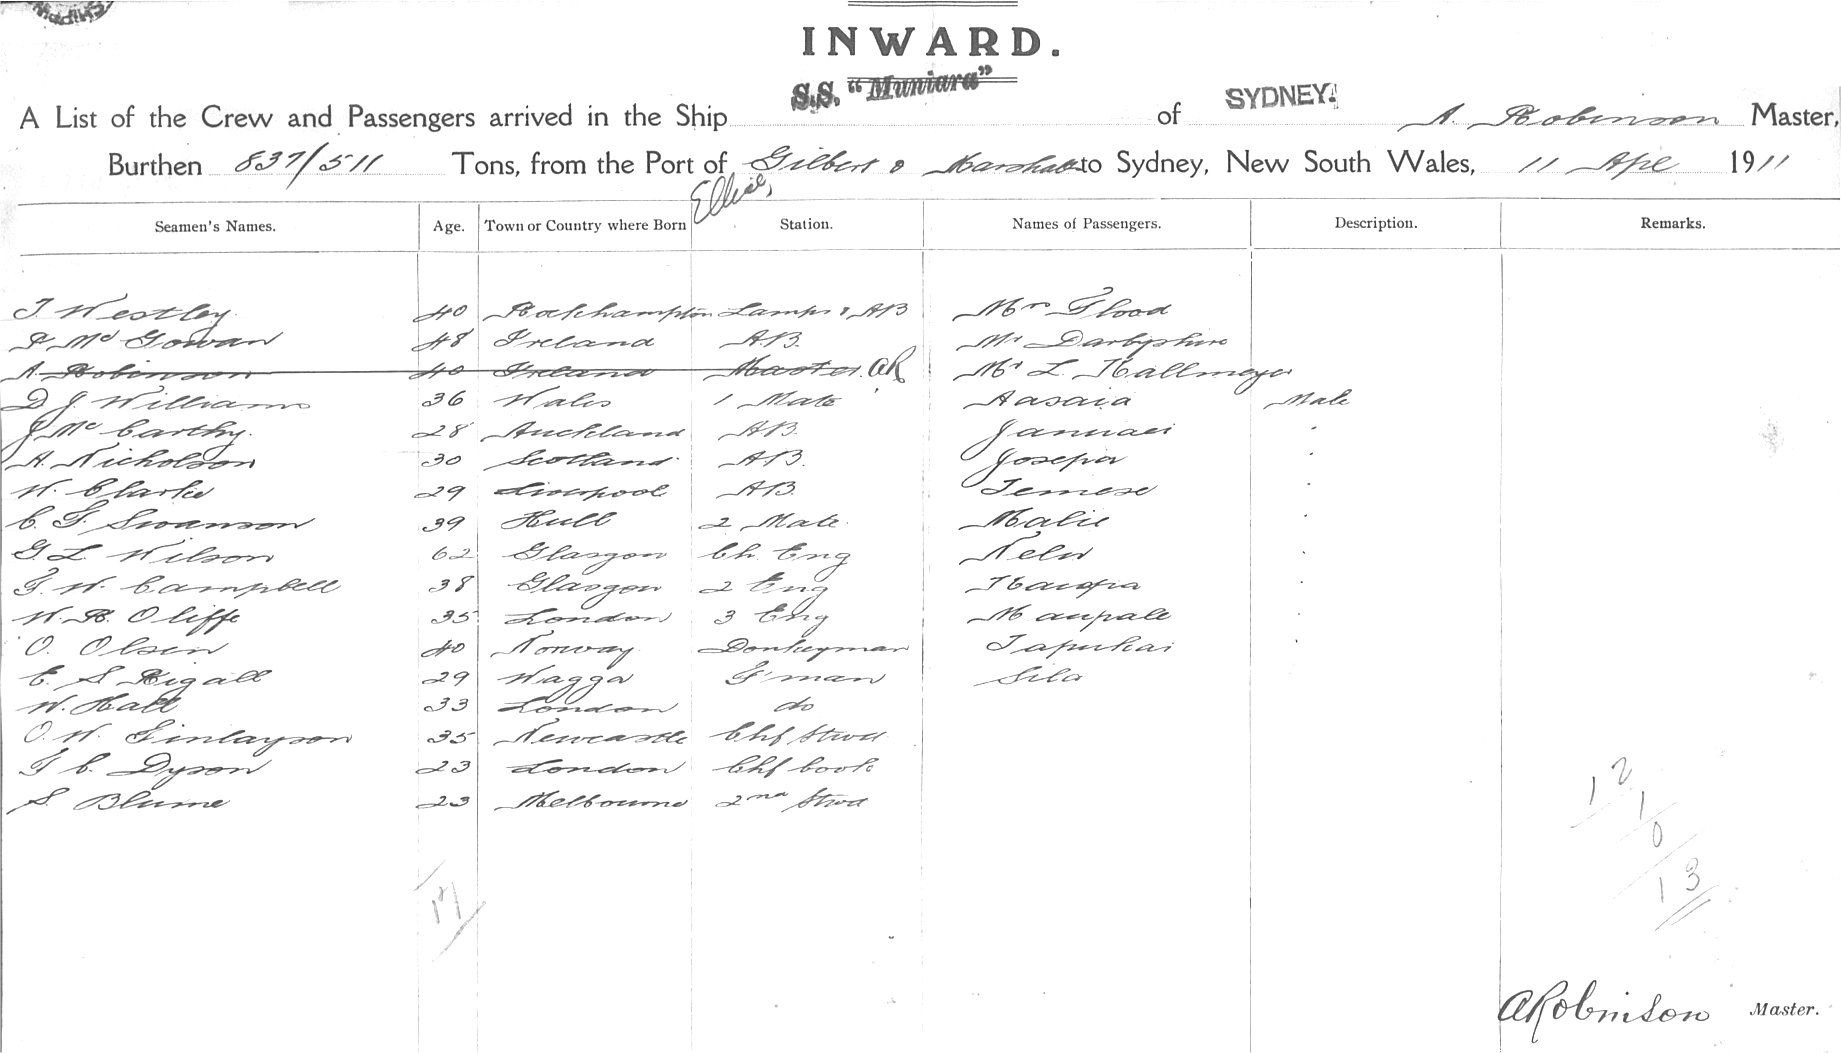 INWARD.
S.S. "Muniara"
SYDNEY.
A List of the Crew and Passengers arrived in the Ship of A. Robinson Master,
Burthen 837/511 Tons, from the Port of Gilbert & Marshall to Sydney, New South Wales, 11 Apl 1911
Ellice,
Seamen's Names. Age. Town or Country where Born Station. Names of Passengers. Description. Remarks.
J. Westley 40 Rockhampton Lamps & AB Mrs Flood
Mc Gowan 48 Ireland A.B. Mr Darbyshire
A. Robinson 40 Ireland Master AR Mr L. Kallmeyer
D J Williams 36 Wales 1 Mate Aasaia Male
J Mc Carthy. 28 Auckland AB
A. Nicholson 30 Scotland AB Josepa
W. Clarke 29 Liverpool AB. Temese
C. F. Swanson 39 Hull 2 Mate. Malie
G L Wilson 62 Glasgow Ch Eng
F. W. Campbell 38 Glasgow 2 Eng
W. R Oliffe 35 London 3 Eng Maupale
O. Olsen 40 Norway Donkeyman Tapukai
E. S Rigall 29 Wagga F'man Sila
W. Hall 33 London do
O. W. Finlayson 35 Newcastle Chf Stwd
F C. Dyson 23 London Chf Cook
S. Blume 23 Melbourne 2nd Stwd
12
1
0
13
17
ARobinson Master.